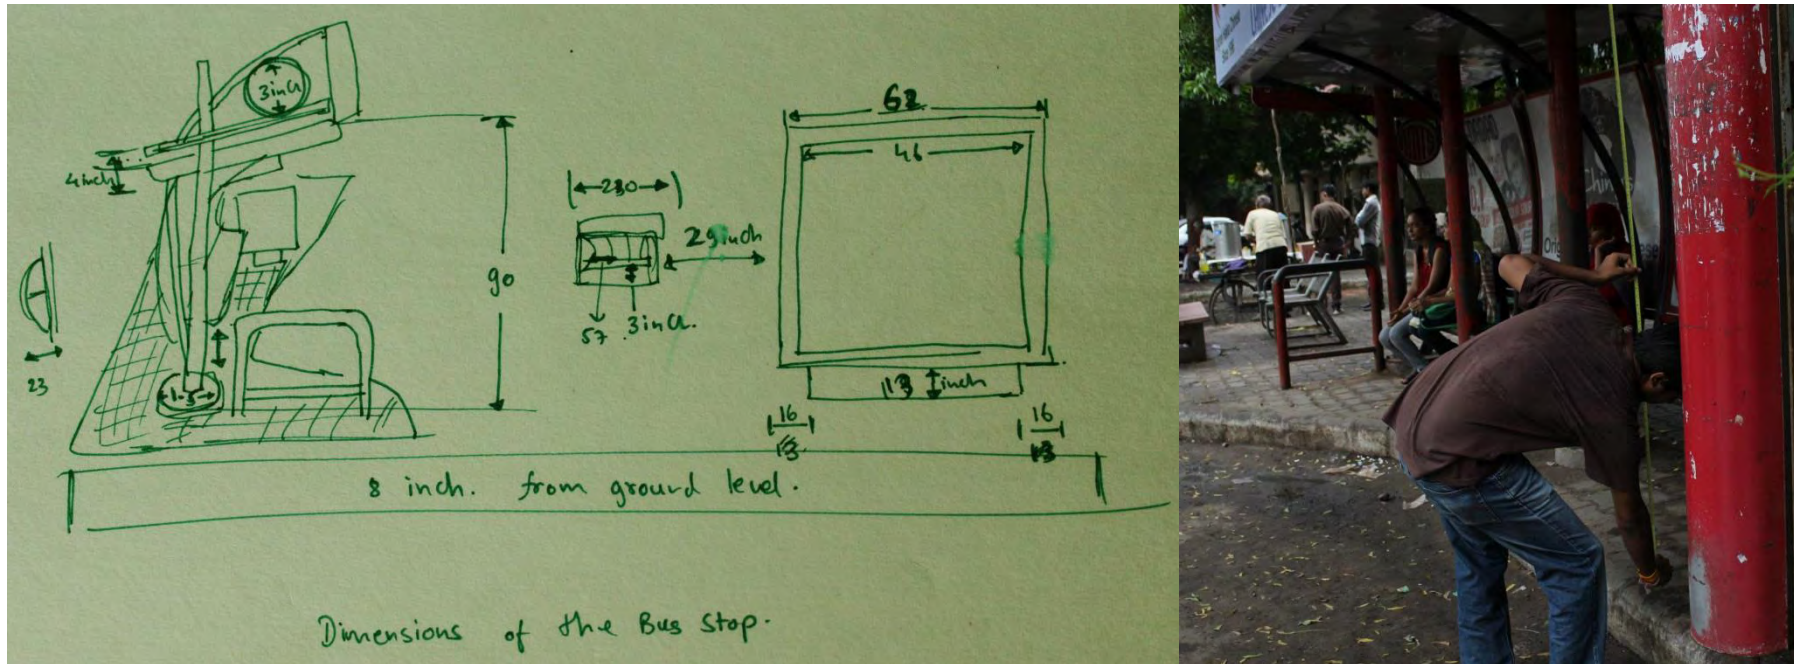 3 inch
4 inch
90
23
1.5
230
29 inch
57
3 inch.
62
46
13 inch
16
13
16
13
8 inch. from ground level.
Dimensions of the Bus Stop.